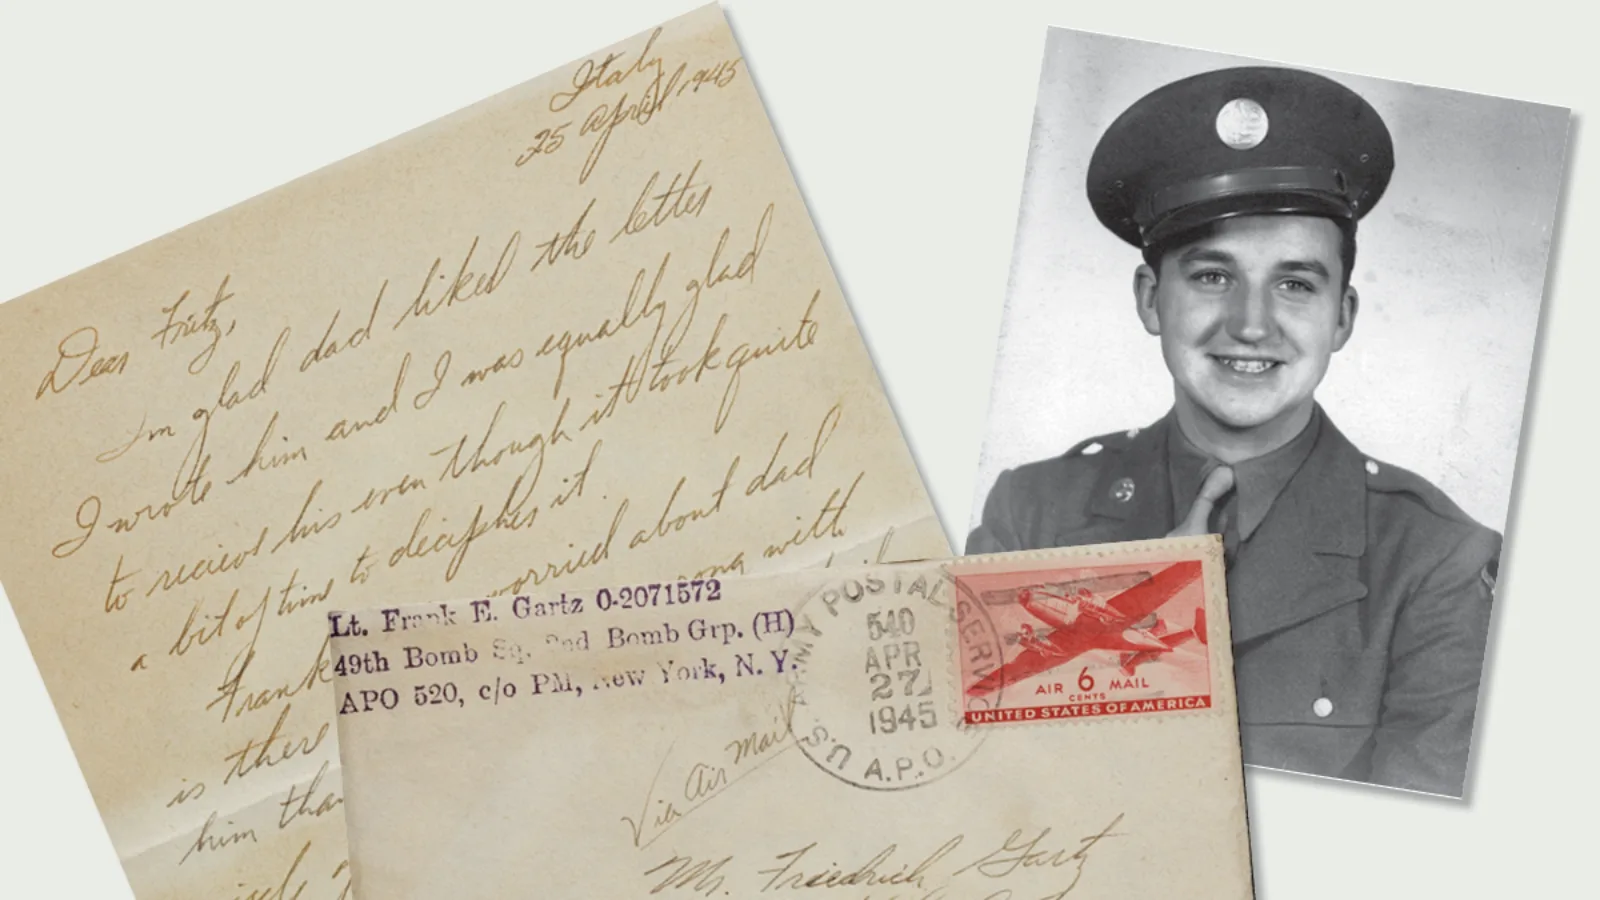 Italy
25 April 1945
Dear Fritz,
Im glad dad liked the letter
I wrote him and I was equally glad
to recieve his even though it took quite
a bit of time to decipher it.
Frank worried about dad
is there with
him than
Lt. Frank E. Gartz 0-2071572
49th Bomb Sq. 2nd Bomb Grp. (H)
APO 520, c/o PM, New York, N. Y.
Via Air Mail
ARMY POSTAL SERVICE
540
APR
27
1945
U.S. A.P.O.
AIR 6 MAIL
CENTS
UNITED STATES OF AMERICA
Mr. Friedrich Gartz